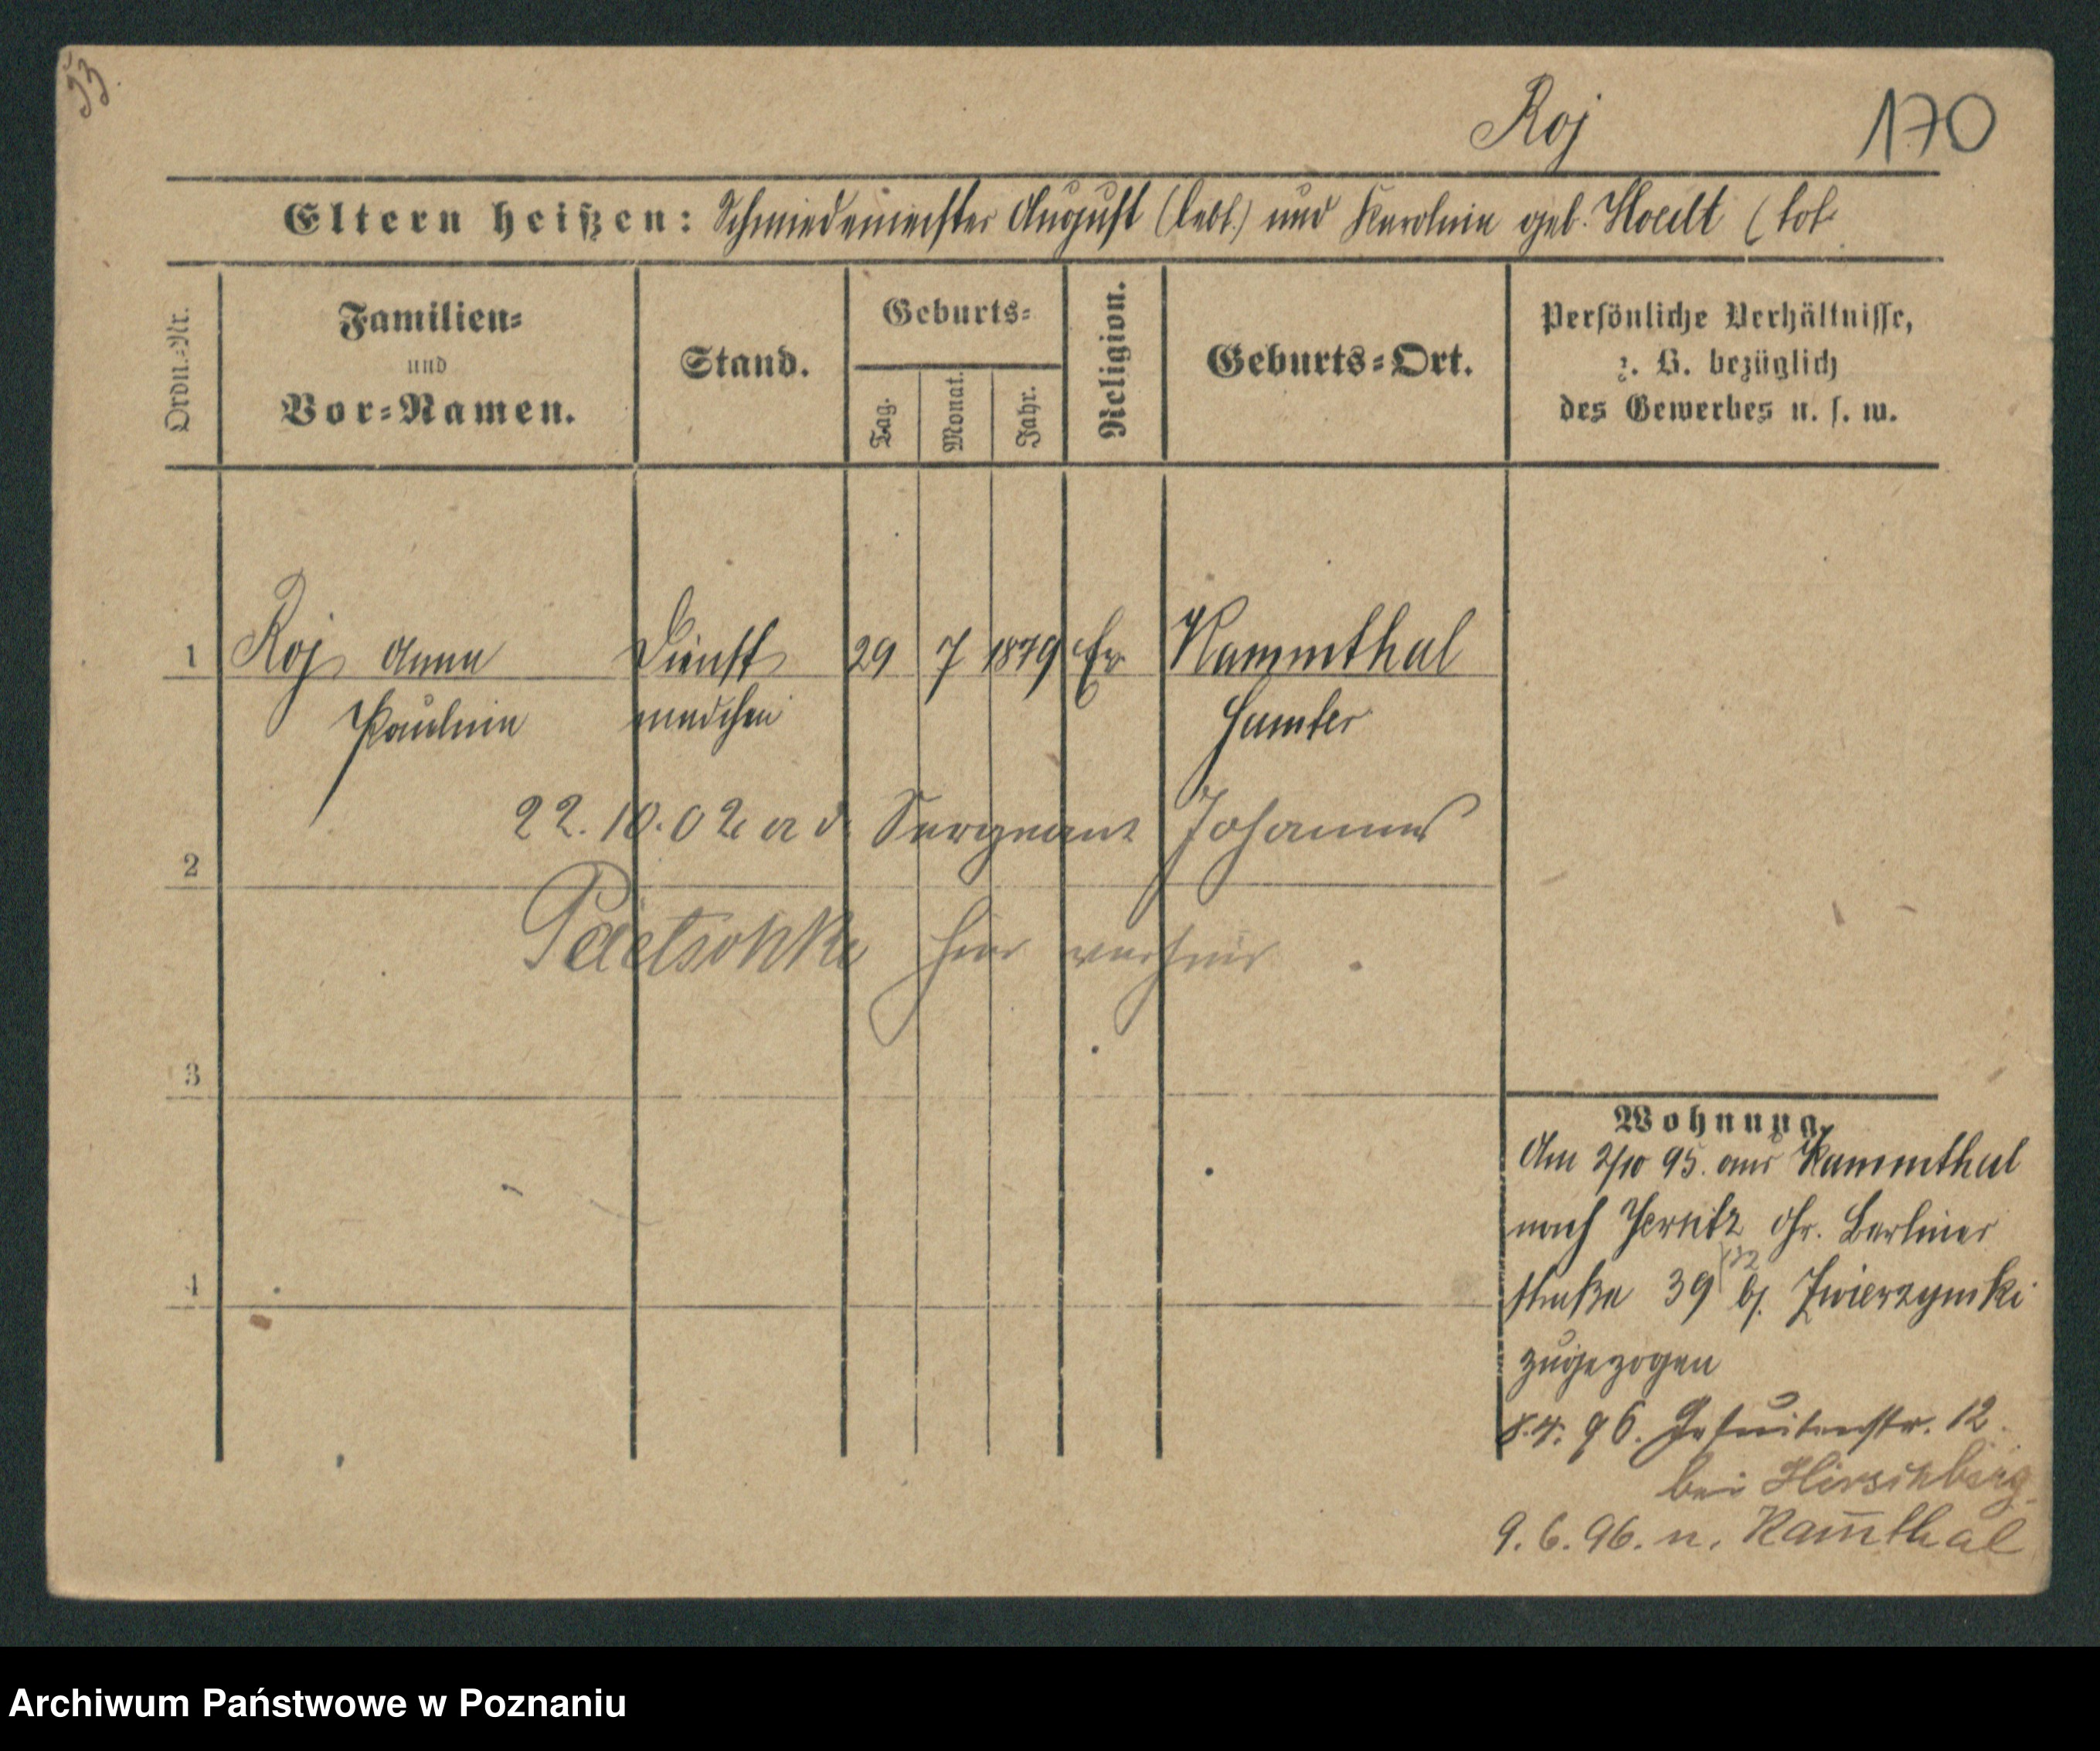 Roj 170
Eltern heißen: Schmiedemeister August (lebt.) und Karoline geb. Hoedt (tot
Ordn.-Nr.
Familien-
und
Vor-Namen.
Stand.
Geburts-
Tag.
Monat.
Jahr.
Religion.
Geburts-Ort.
Persönliche Verhältnisse,
z. B. bezüglich
des Gewerbes u. s. w.
1 Roj Anna Dienst 29 7 1879 Ev Kammthal
Pauline madchen Samter
22.10.02 a d. Sergeant Johannes
2
Paetschke hier verheir
3
Wohnung.
Am 2/10 95. aus Kammthal
nach Jersitz Gr. Berliner
4
straße 39 bj. Zwierzynski
zugezogen
8.4. 96. Jesuitenstr. 12.
bei Hirschberg
9.6.96. n. Kam̅thal
Archiwum Państwowe w Poznaniu